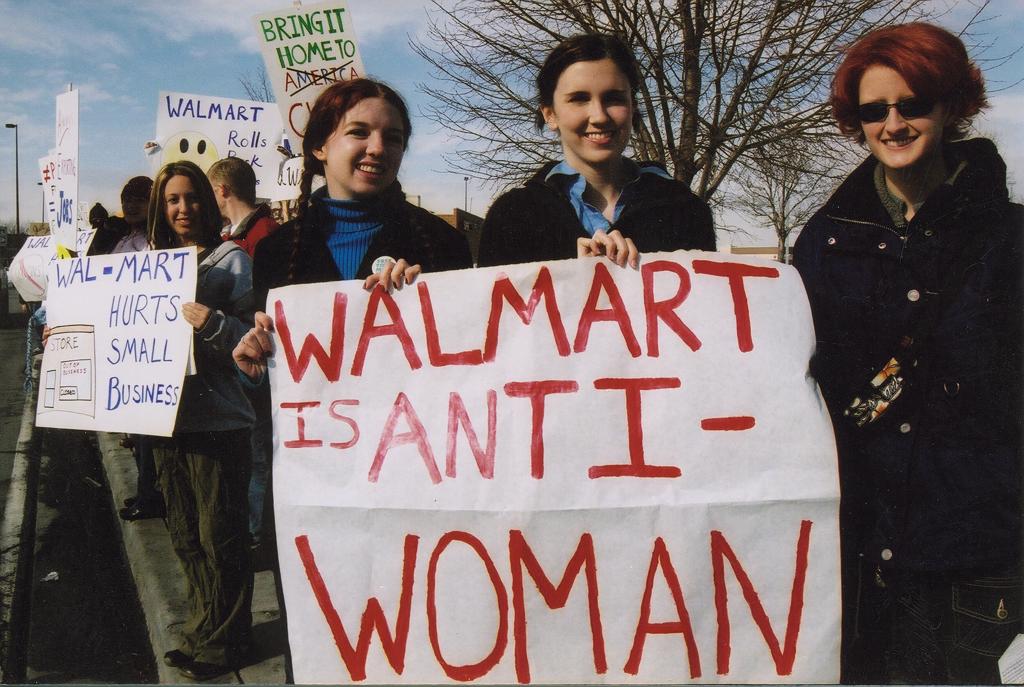 BRING IT
HOME TO
AMERICA
WALMART
Rolls
Back
Jobs
WAL-MART
HURTS
SMALL
BUSINESS
STORE
OUT OF
BUSINESS
CLOSED
WALMART
IS ANTI-
WOMAN